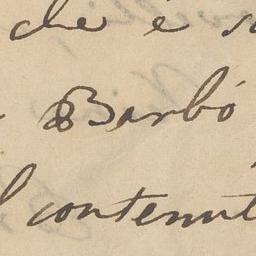 che è
Barbó
l contenut